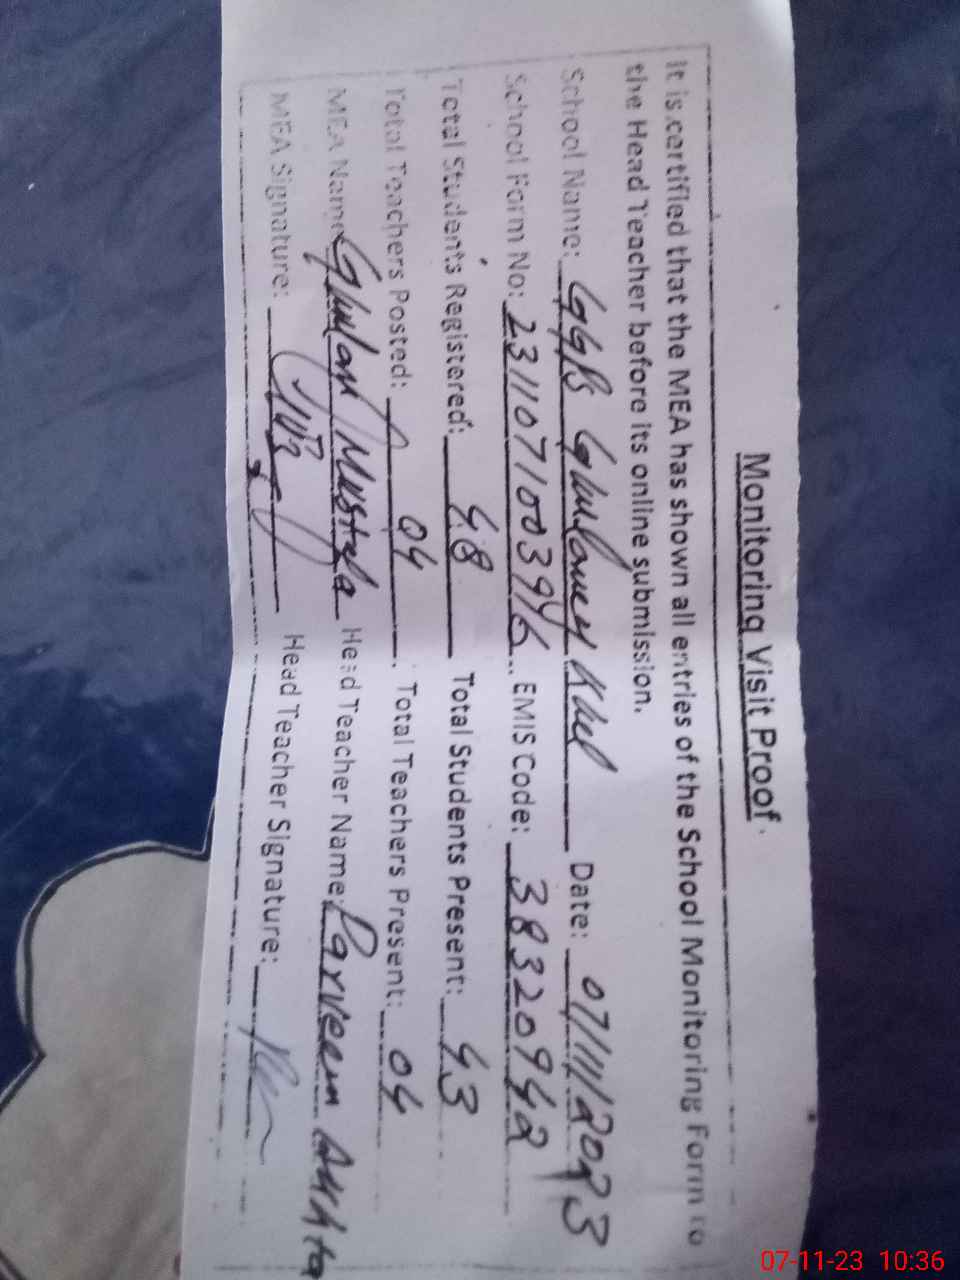 Monitoring Visit Proof
It is certified that the MEA has shown all entries of the School Monitoring Form to
the Head Teacher before its online submission.
School Name: GGPS Date: 07/11/2023
School Form No: 23110710039 EMIS Code: 38320942
Total Students Registered: 48 Total Students Present: 43
Total Teachers Posted: 04 Total Teachers Present: 04
MEA Name: Ghulam Mustafa Head Teacher Name: Parveen Akhta
MEA Signature: Head Teacher Signature:
07-11-23 10:36